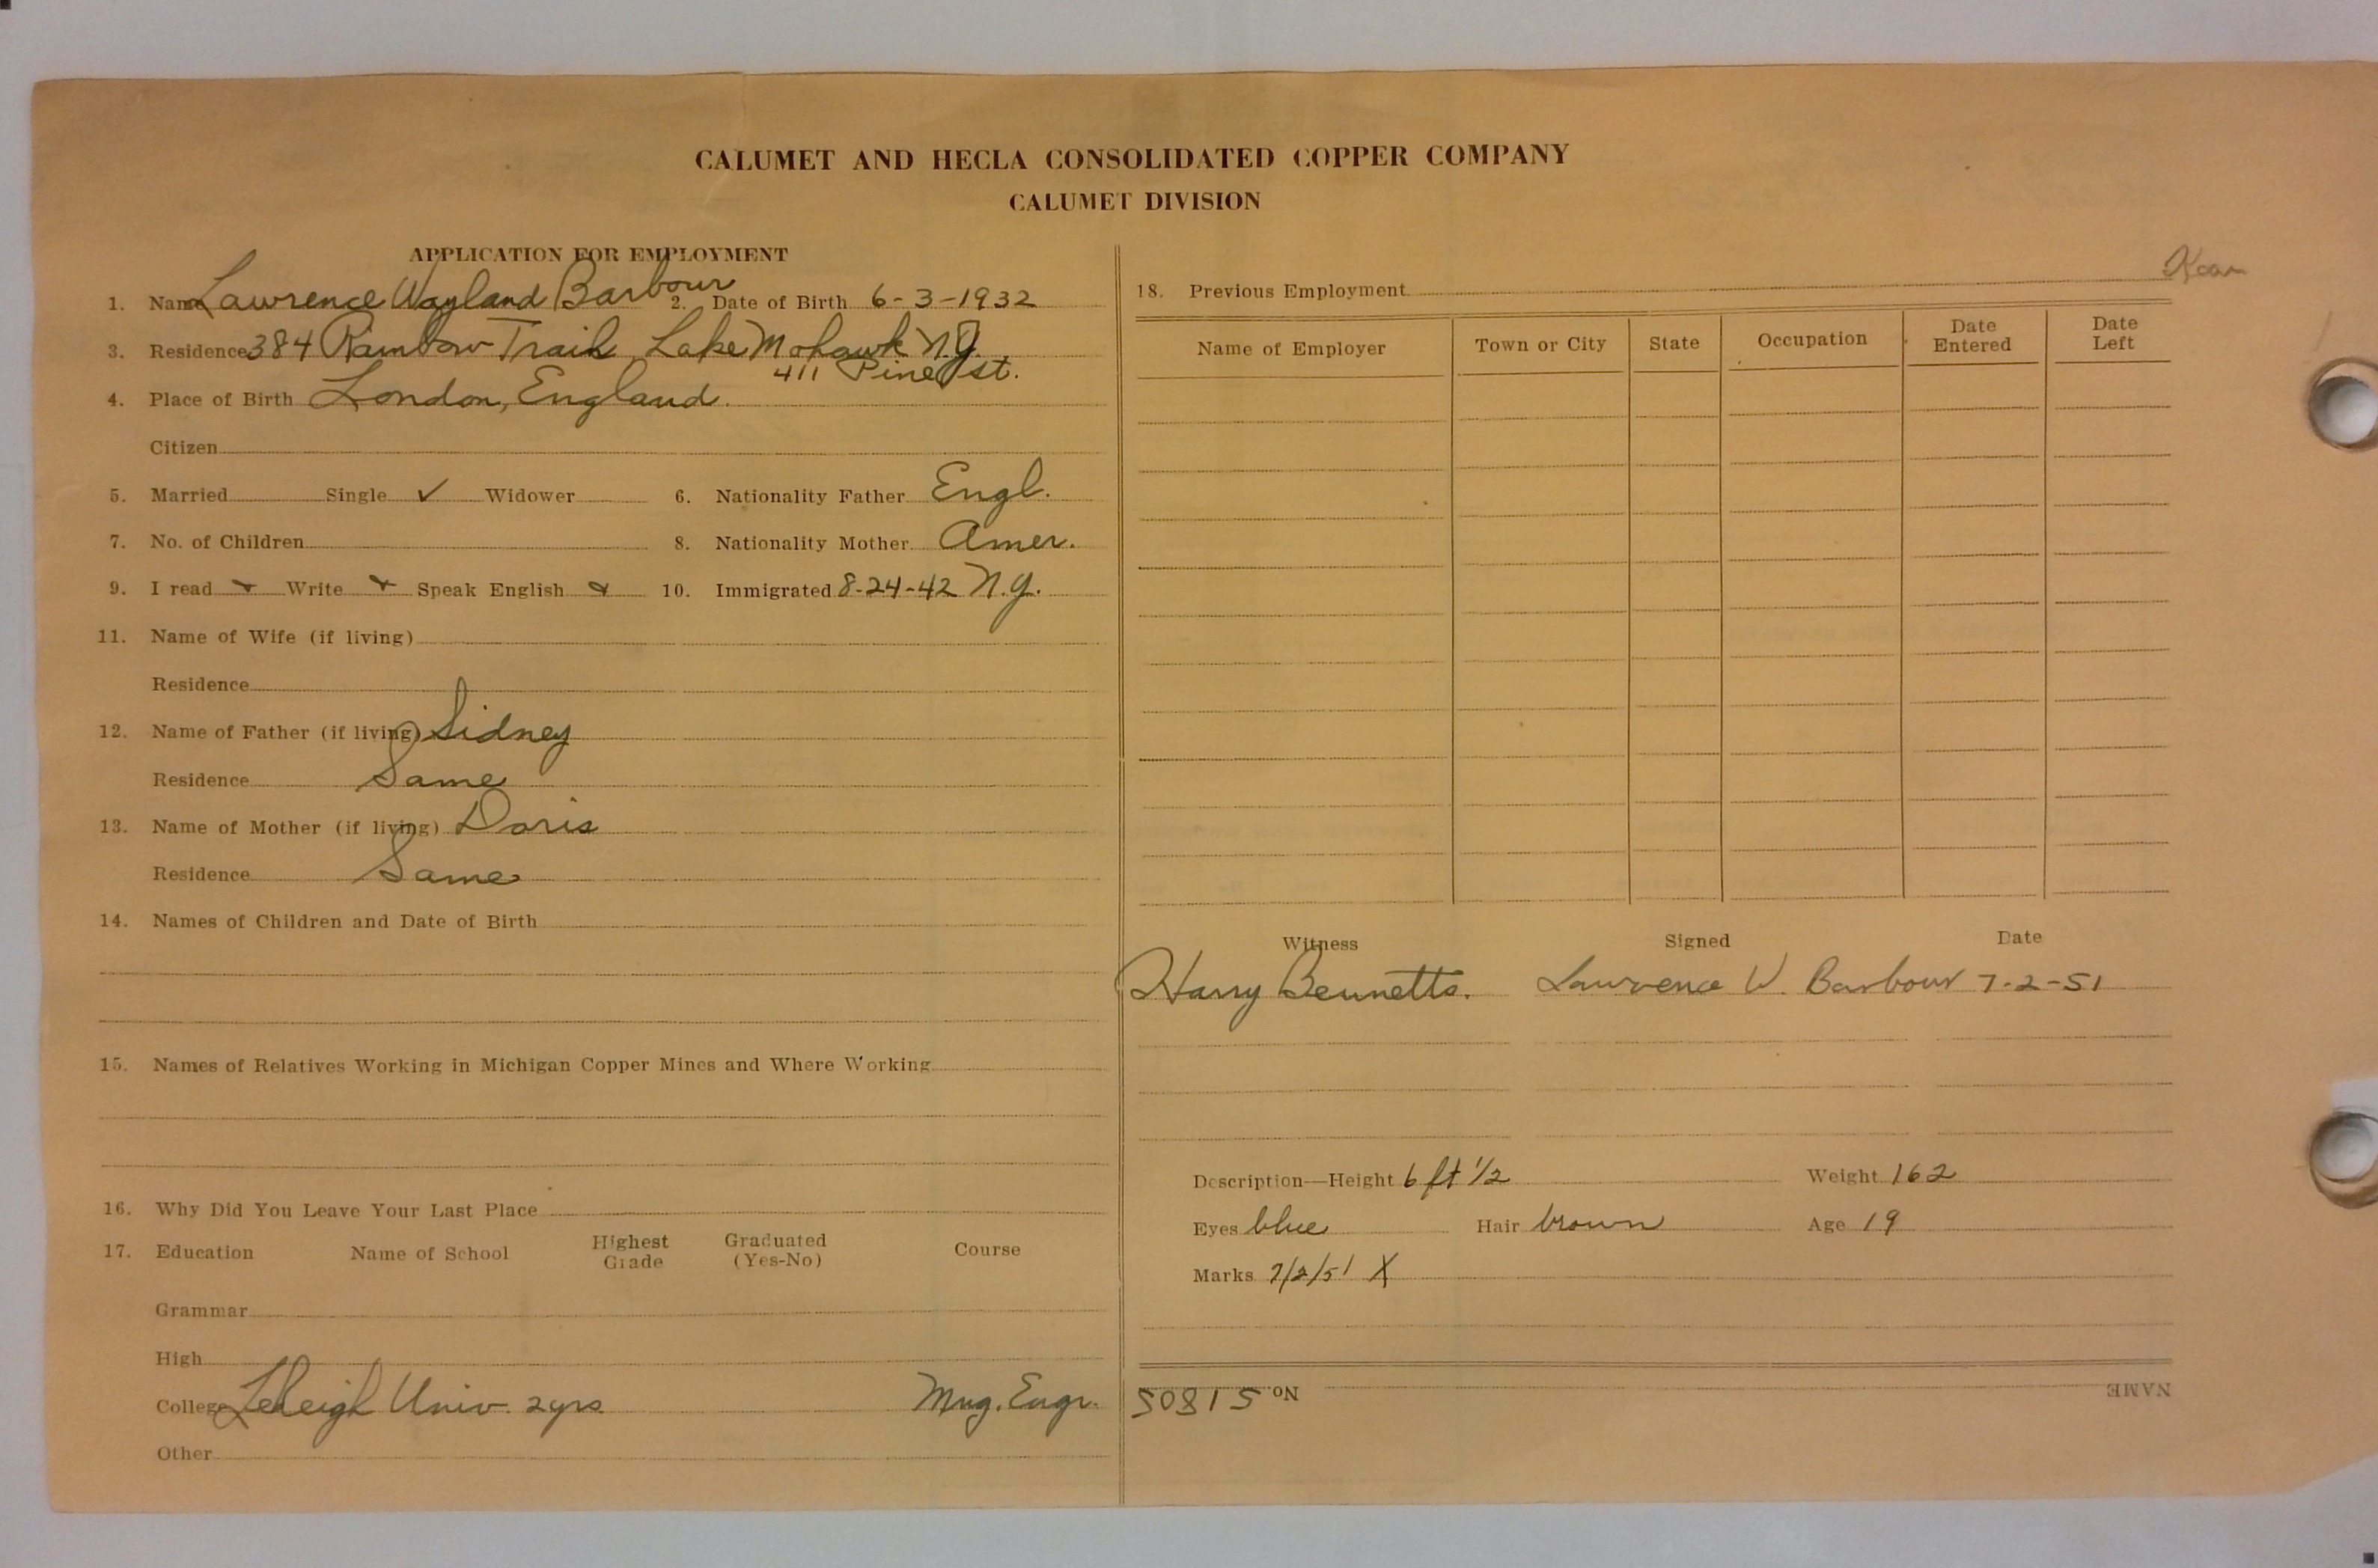 CALUMET AND HECLA CONSOLIDATED COPPER COMPANY
CALUMET DIVISION
APPLICATION FOR EMPLOYMENT
1. Name Lawrence Wayland Barbour 2. Date of Birth 6-3-1932
3. Residence 384 Rainbow Trail, Lake Mohawk N.J.
411 Pine st.
4. Place of Birth London, England.
Citizen
5. Married Single ✓ Widower 6. Nationality Father Engl.
7. No. of Children 8. Nationality Mother Amer.
9. I read Write Speak English 10. Immigrated 8-24-42 N.Y.
11. Name of Wife (if living)
Residence
12. Name of Father (if living) Sidney
Residence Same
13. Name of Mother (if living) Doris
Residence Same
14. Names of Children and Date of Birth
15. Names of Relatives Working in Michigan Copper Mines and Where Working
16. Why Did You Leave Your Last Place
17. Education Name of School Highest Grade Graduated (Yes-No) Course
Grammar
High
College Lehigh Univ. 2yrs Mng. Engr.
Other
18. Previous Employment
Name of Employer Town or City State Occupation Date Entered Date Left
Witness Signed Date
Harry Bennetts. Lawrence W. Barbour 7-2-51
Description—Height 6 ft 1/2 Weight 162
Eyes blue Hair brown Age 19
Marks 7/2/51 X
NAME No. 51805